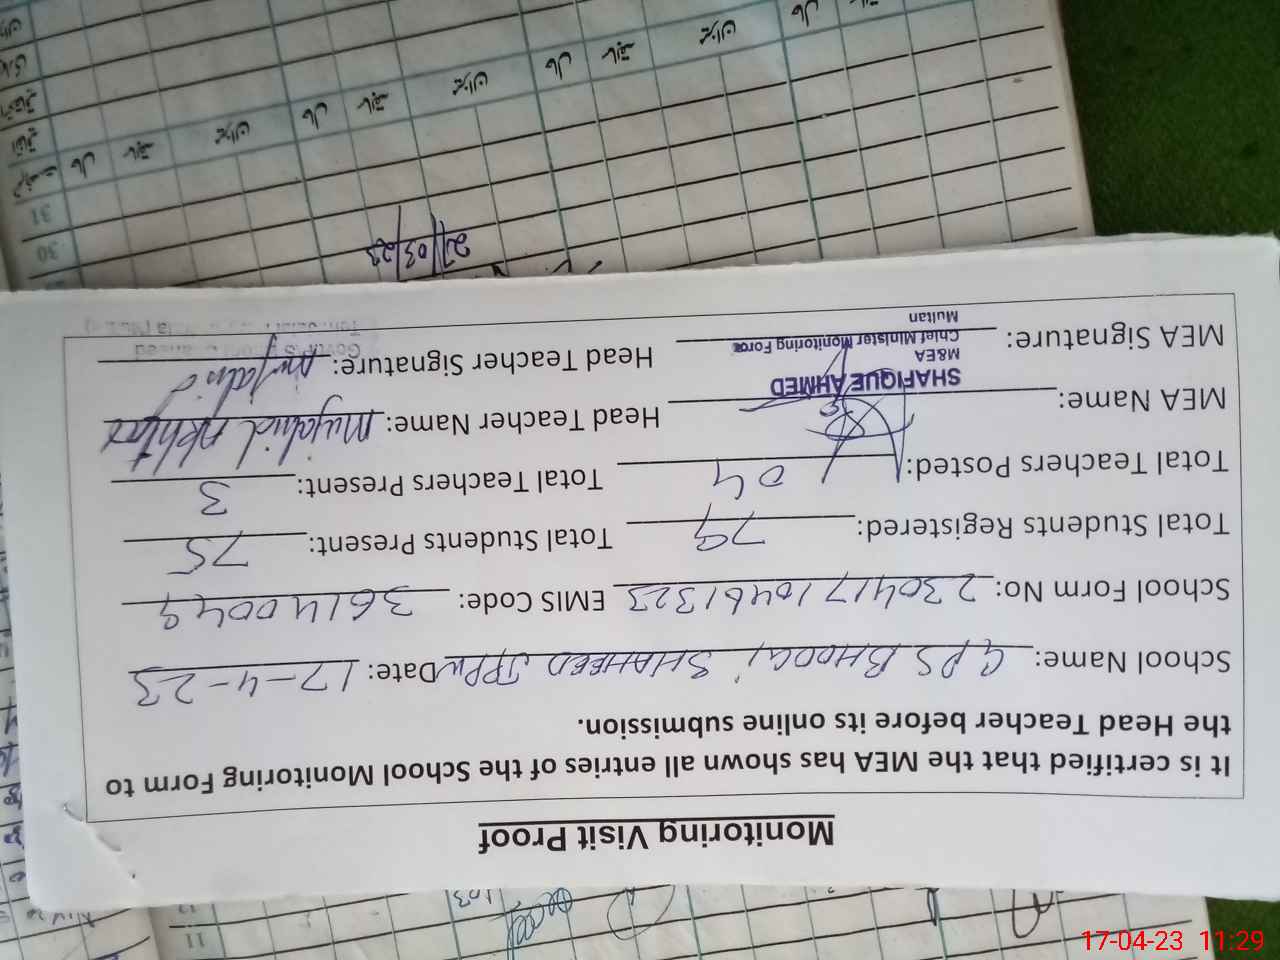 Monitoring Visit Proof
It is certified that the MEA has shown all entries of the School Monitoring Form to
the Head Teacher before its online submission.
School Name: GPS BHOOGI SHAHEED JPPW Date: 17-4-23
School Form No: 23041710461323 EMIS Code: 36140049
Total Students Registered: 79 Total Students Present: 75
Total Teachers Posted: 04 Total Teachers Present: 3
MEA Name: Head Teacher Name: Mujahid Akhtar
SHAFIQUE AHMED
M&EA
Chief Minister Monitoring Force
Multan
MEA Signature: Head Teacher Signature: Mujahid
27/03/23
30
31
میزان سابقہ حال میزان سابقہ حال میزان سابقہ حال
11
17-04-23 11:29